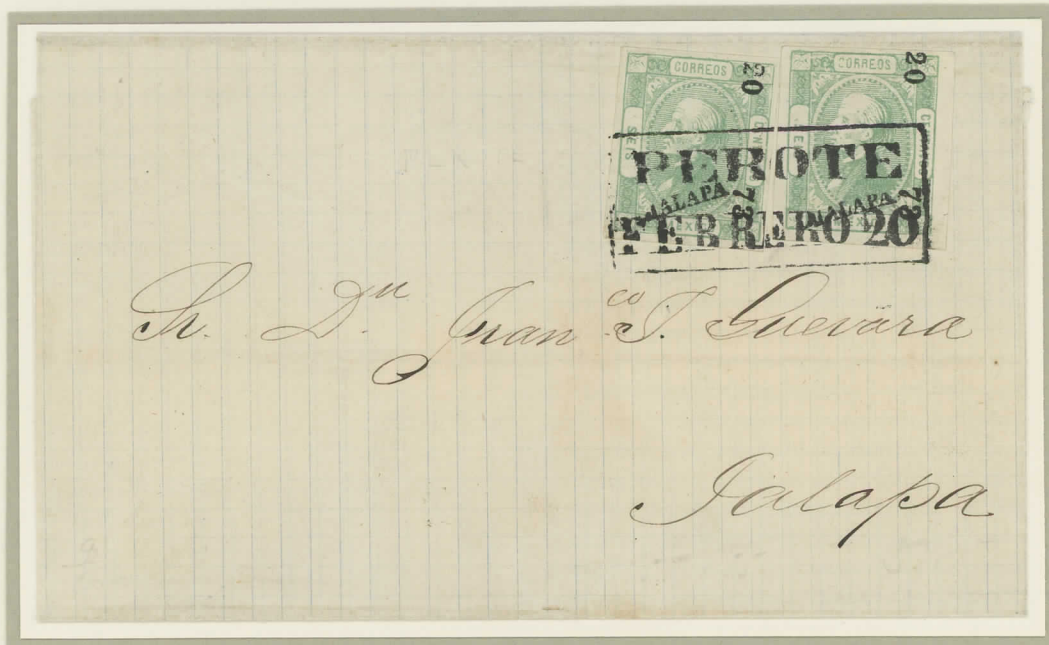 CORREOS 20 CORREOS 20
SEIS
PEROTE
JALAPA 73 JALAPA 73
FEBRERO 20
Sr. Dn Franco J. Guevara
Jalapa